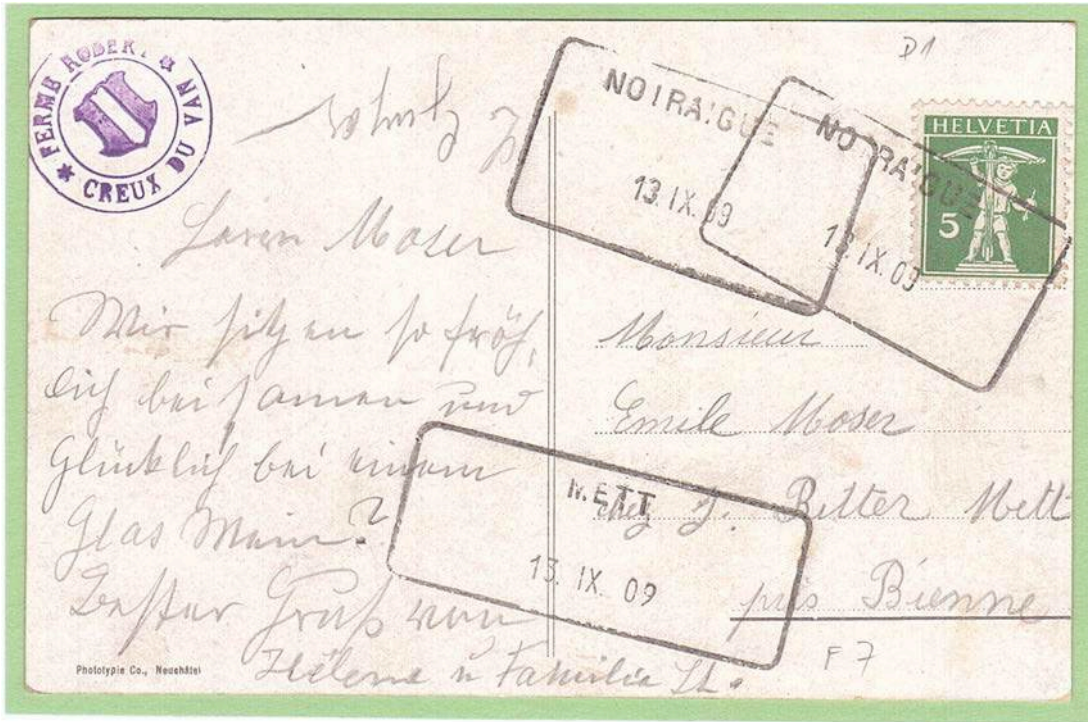 FERME ROBERT
CREUX DU VAN
D1
NOIRAIGUE
13.IX.09
NOIRAIGUE
13.IX.09
HELVETIA
5
Moser
Wir sitzen so fröh,
lich beisamen und
Glücklich bei einem
Glas Wein.
Bester Gruß von
Helene u Familie St.
Monsieur
Emile Moser
chez J. Ritter Mett
près Bienne
METT
13. IX. 09
F 7
Phototypie Co., Neuchâtel